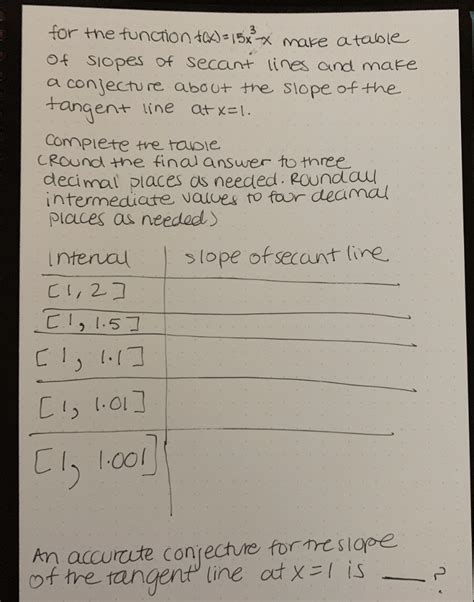 for the function f(x)=15x³-x make a table
of slopes of secant lines and make
a conjecture about the slope of the
tangent line at x=1.
complete the table
(Round the final answer to three
decimal places as needed. Round all
intermediate values to four decimal
places as needed)
interval | slope of secant line
[1, 2]
[1, 1.5]
[1, 1.1]
[1, 1.01]
[1, 1.001]
An accurate conjecture for the slope
of the tangent line at x=1 is ___?